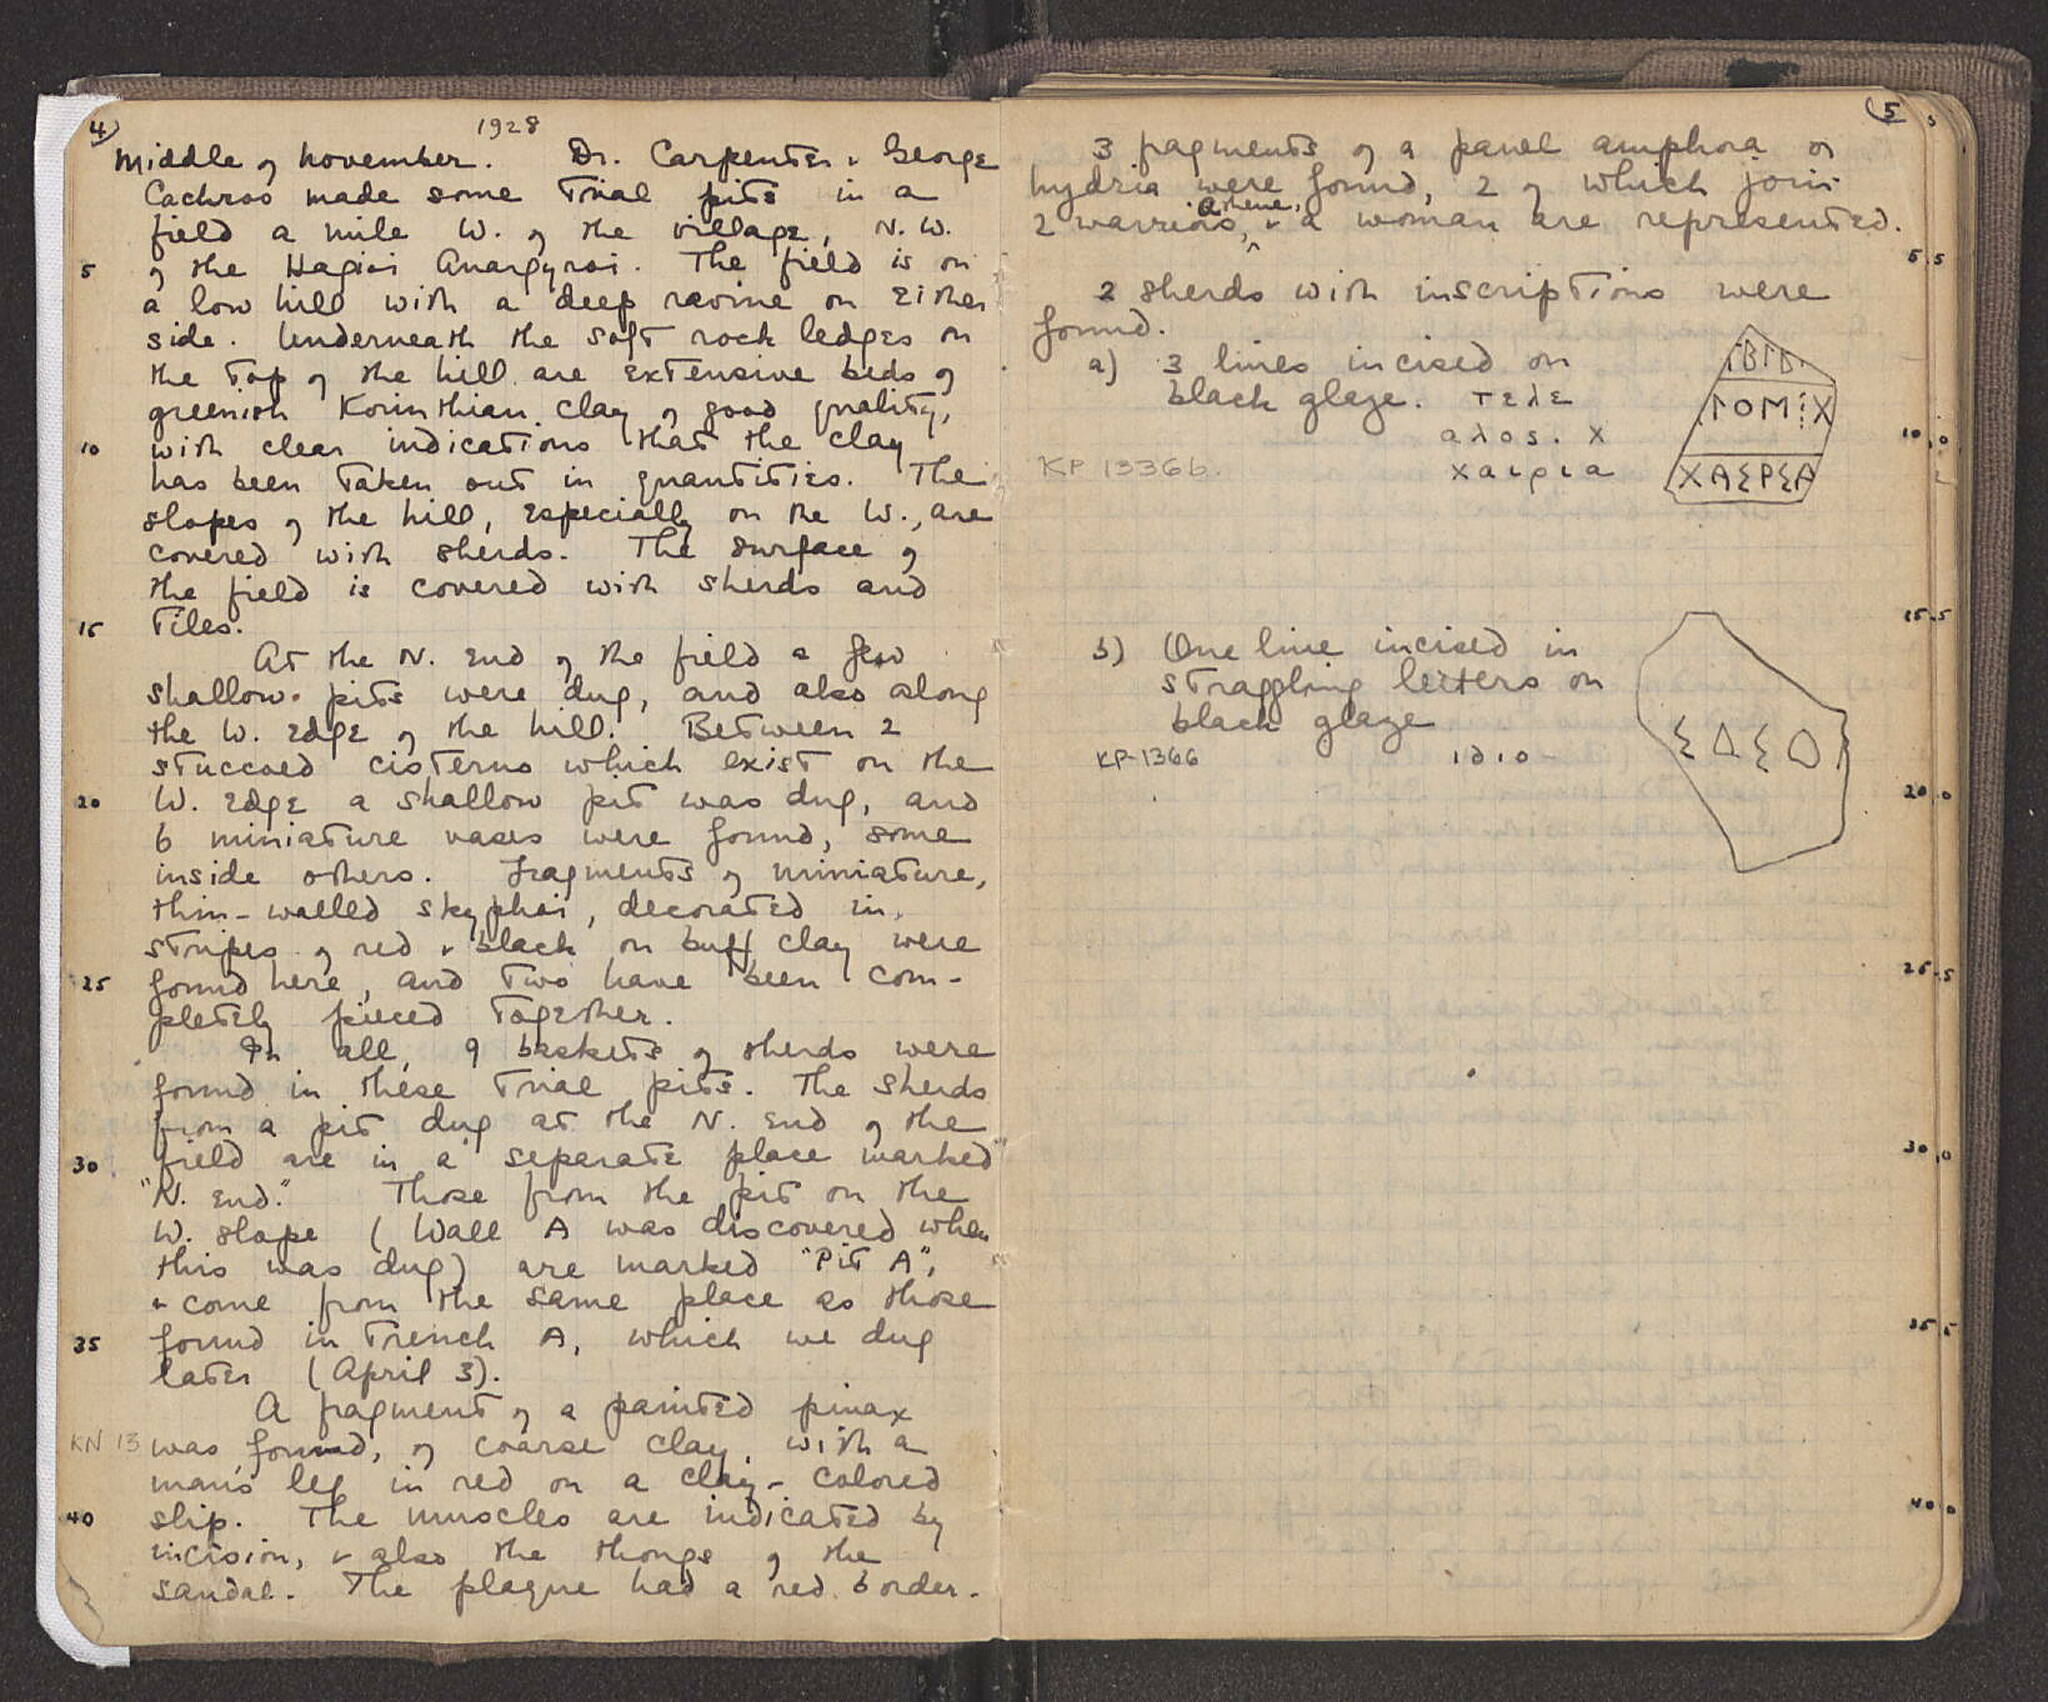 4
1928
Middle of November. Dr. Carpenter & George
Cachros made some trial pits in a
field a mile W. of the village, N.W.
5 of the Hagioi Anargyroi. The field is on
a low hill with a deep ravine on either
side. Underneath the soft rock ledges on
the top of the hill are extensive beds of
greenish Korinthian clay of good quality,
10 with clear indications that the clay
has been taken out in quantities. The
slopes of the hill, especially on the W., are
covered with sherds. The surface of
the field is covered with sherds and
15 tiles.
At the N. end of the field a few
shallow pits were dug, and also along
the W. edge of the hill. Between 2
stuccoed cisterns which exist on the
20 W. edge a shallow pit was dug, and
6 miniature vases were found, some
inside others. Fragments of miniature,
thin-walled skyphoi, decorated in
stripes of red & black on buff clay were
25 found here, and two have been com-
pletely pieced together.
In all, 9 baskets of sherds were
found in these trial pits. The sherds
from a pit dug at the N. end of the
30 field are in a separate place marked
"N. end." Those from the pit on the
W. slope (Wall A was discovered when
this was dug) are marked "Pit A",
& come from the same place as those
35 found in Trench A, which we dug
later (April 3).
A fragment of a painted pinax
KN 13 was found, of coarse clay with a
man's leg in red on a clay-colored
40 slip. The muscles are indicated by
incision, & also the thongs of the
sandal. The plaque had a red border.
5
3 fragments of a panel amphora or
hydria were found, 2 of which join.
2 warriors, Athene, & a woman are represented.
2 sherds with inscriptions were
found.
a) 3 lines incised on
black glaze. τελε
αλος. Χ
KP 1336b. χαιρια
ΤΟΜ⋮Χ
ΧΑΣΡΣΑ
b) One line incised in
straggling letters on
black glaze
KP-1366 ιδιο-
ΣΔΣΟ
5
5.5
10.0
15.5
20.0
25.5
30.0
35.5
40.0